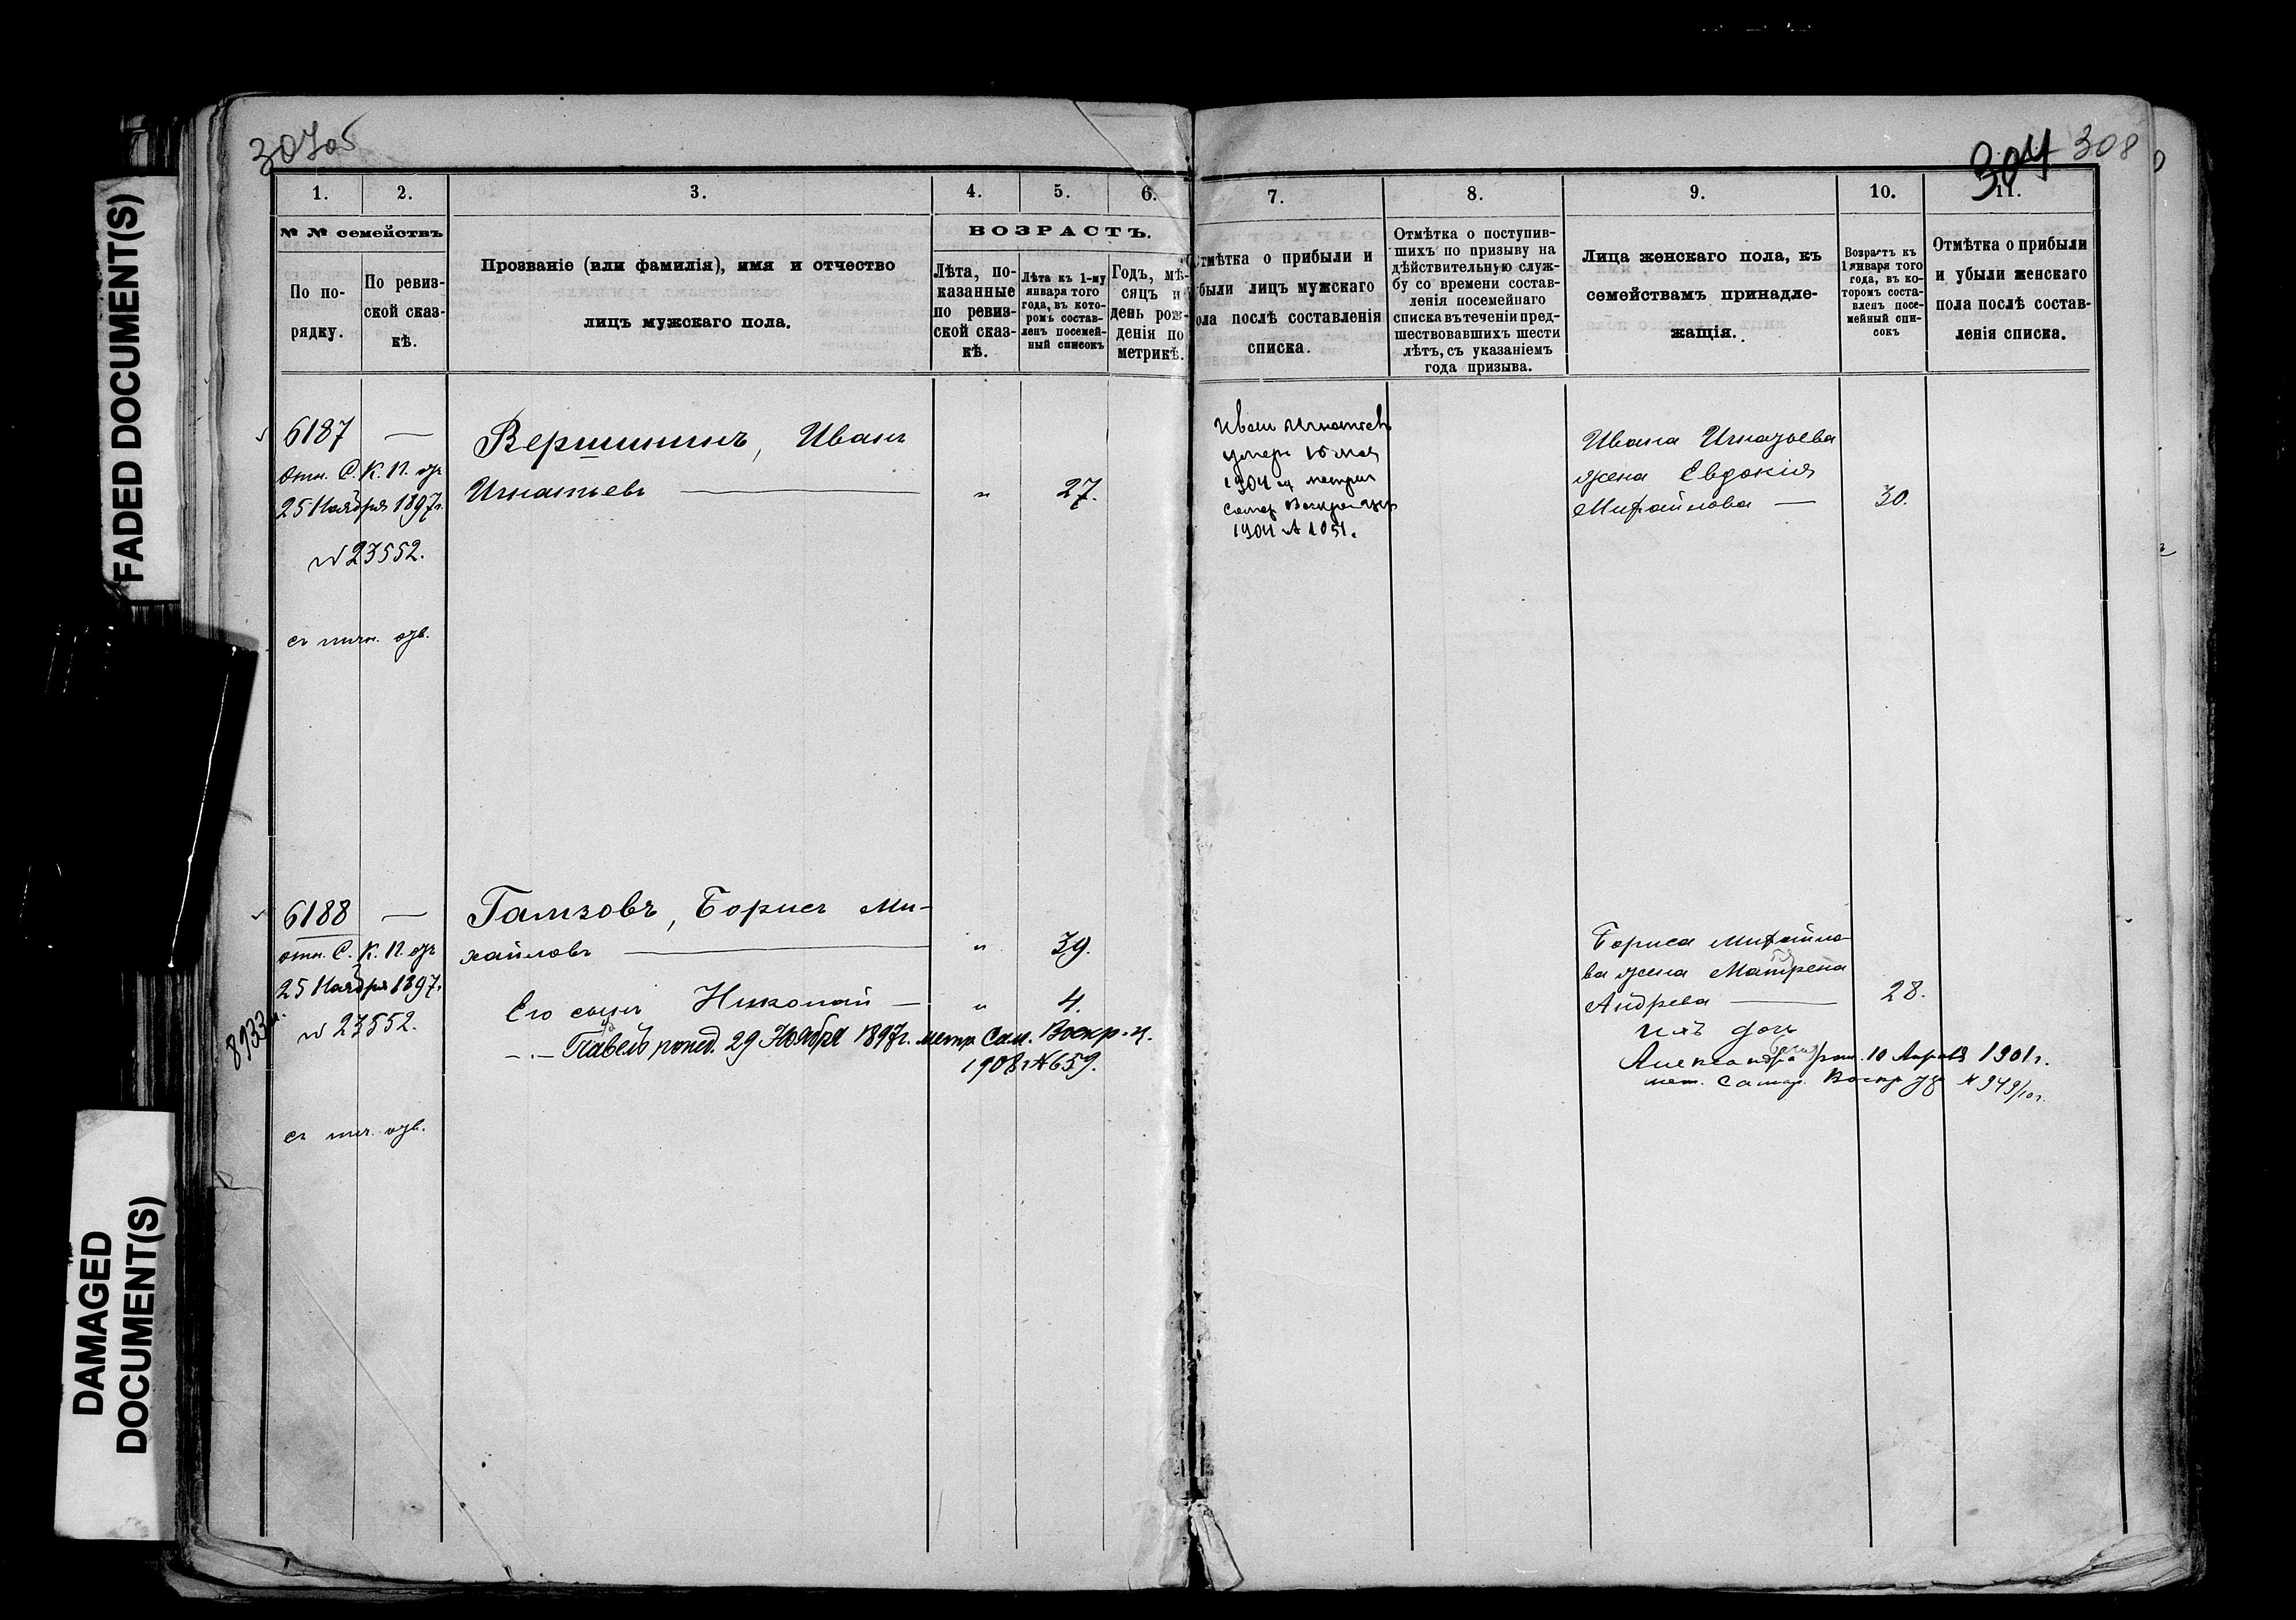 307об
304 308
1. 2. 3. 4. 5. 6. 7. 8. 9. 10. 11.
№ № семействъ
По по-
рядку.
По ревиз-
ской сказ-
кѣ.
Прозваніе (или фамилія), имя и отчество
лицъ мужскаго пола.
ВОЗРАСТЪ.
Лѣта, по-
казанные
по ревиз-
ской сказ-
кѣ.
Лѣта къ 1-му
января того
года, въ кото-
ромъ состав-
ленъ посемей-
ный списокъ
Годъ, мѣ-
сяцъ и
день рож-
денія по
метрикѣ.
Отмѣтка о прибыли и
были лицъ мужскаго
ола послѣ составленія
списка.
Отмѣтка о поступив-
шихъ по призыву на
дѣйствительную служ-
бу со времени состав-
ленія посемейнаго
списка въ теченіи пред-
шествовавшихъ шести
лѣтъ, съ указаніемъ
года призыва.
Лица женскаго пола, къ
семействамъ принадле-
жащія.
Возрастъ къ
1 января того
года, въ ко-
торомъ соста-
вленъ посе-
мейный спи-
сокъ
Отмѣтка о прибыли
и убыли женскаго
пола послѣ состав-
ленія списка.
6187 —
Отн. С. К. П. отъ
25 Ноября 1897г.
№ 23552.
Вершининъ, Иванъ
Игнатьевъ — " 27.
Иванъ Игнатьевъ
умеръ 16 мая
1904 г. метрик
Самар Воскрес цер
1904 № 1051.
Ивана Игнатьева
жена Евдокія
Михайлова — 30.
6188 —
отн. С. К. П. отъ
25 Ноября 1897г.
№ 23552.
8933
Гамзовъ, Борисъ Ми-
хайловъ — " 39.
Его сынъ Николай — " 4.
-.- Павелъ 29 Ноября 1897г. метр. Сам. Воскр. ц.
1908г № 659.
Бориса Михайло-
ва жена Матрена
Андрева — 28.
ихъ дочь
Александра рож. 10 Апрѣля 1901 г.
мет. Самар. Воскр № 949/10г.
FADED DOCUMENT(S)
DAMAGED
DOCUMENT(S)